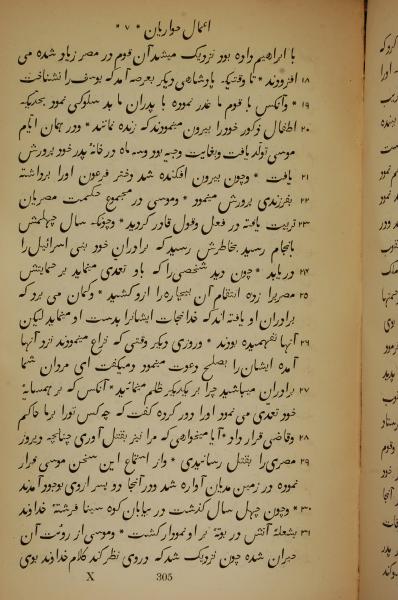 اعمال حواریان * ۷ *
با ابراهیم داده بود نزدیک میشد آن قوم در مصر زیاد شده می
۱۸ افزودند * تا وقتیکه پادشاهی دیگر بعرصه آمد که یوسف را نشناخت
۱۹ * وآنکس با قوم ما غدر نموده با پدران ما بد سلوکی نمود بحدیکه
۲۰ اطفال ذکور خودرا بیرون مینمودند که زنده نمانند * ودر همان ایام
موسی تولد یافت وبغایت وجیه بود وسه ماه در خانهٔ پدر خود پرورش
۲۱ یافت * وچون بیرون افکنده شد دختر فرعون اورا برداشته
۲۲ بفرزندی پرورش مینمود * وموسی در مجموع حکمت مصریان
۲۳ تربیت یافته در فعل وقول قادر گردید * وچونکه سال چهلمش
بانجام رسید بخاطرش رسید که برادران خود بنی اسرائیل را
۲۴ در یابد * چون دید شخصی را که باو تعدی مینماید بر حمایتش
۲۵ مصریرا زده انتقام آن بیچاره را ازو کشید * وگمان می برد که
برادران او یافته اند که خدا نجات ایشانرا بدست او مینماید لیکن
۲۶ آنها نفهمیده بودند * وروزی دیگر وقتی که نزاع مینمودند نزد آنها
آمده ایشان را بصلح دعوت مینمود ومیگفت ای مردان شما
۲۷ برادران میباشید چرا بر یکدیگر ظلم مینمائید * آنکس که بر همسایهٔ
خود تعدی می نمود اورا دور کرده گفت که چه کس تورا بر ما حاکم
۲۸ وقاضی قرار داد * آیا میخواهی که مرا نیز بقتل آوری چنانچه دیروز
۲۹ مصری را بقتل رسانیدی * واز استماع این سخن موسی فرار
نموده در زمین مدیان آواره شد ودر آنجا دو پسر ازوی بوجود آمدند
۳۰ * وچون چهل سال گذشت در بیابان کوه سینا فرشتهٔ خداوند
۳۱ بشعلهٔ آتش در بوتهٔ بر او نمودار گشت * وموسی از رویت آن
حیران شده چون نزدیک شد که در وی نظر کند کلام خداوند بوی
X 305